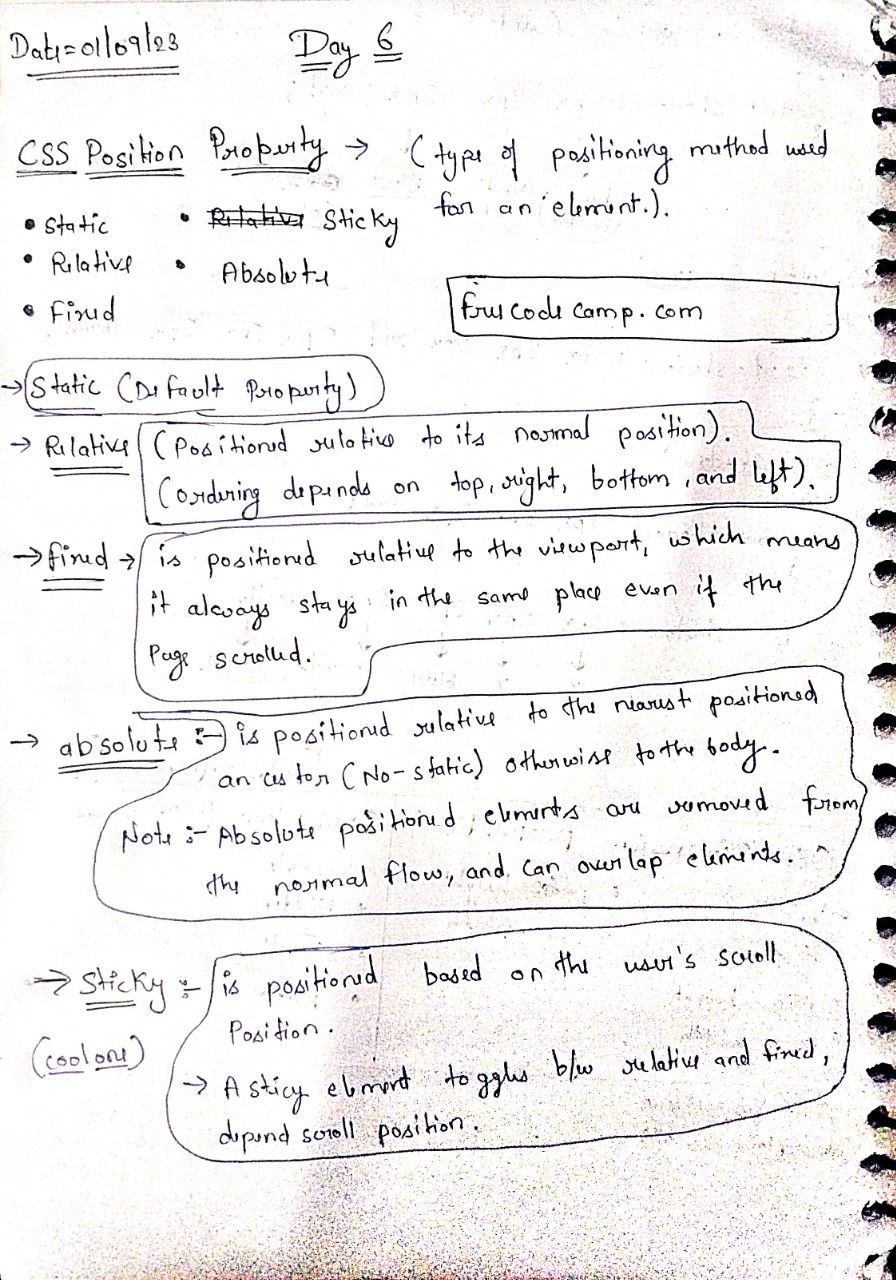 Date=01/09/23 Day 6
CSS Position Property → (type of positioning method used
for an element.).
• Static • Relative Sticky
• Relative • Absolute
• Fixed
freecodecamp.com
→ Static (Default Property)
→ Relative (Positioned relative to its normal position).
(ordering depends on top, right, bottom, and left).
→ fixed → is positioned relative to the viewport, which means
it always stays in the same place even if the
Page scrolled.
→ absolute :- is positioned relative to the nearest positioned
ancestor (No-static) otherwise to the body.
Note :- Absolute positioned, elements are removed from
the normal flow, and can overlap elements.
→ Sticky :- is positioned based on the user's scroll
Position.
(cool one)
→ A sticy element toggles b/w relative and fixed,
depend scroll position.